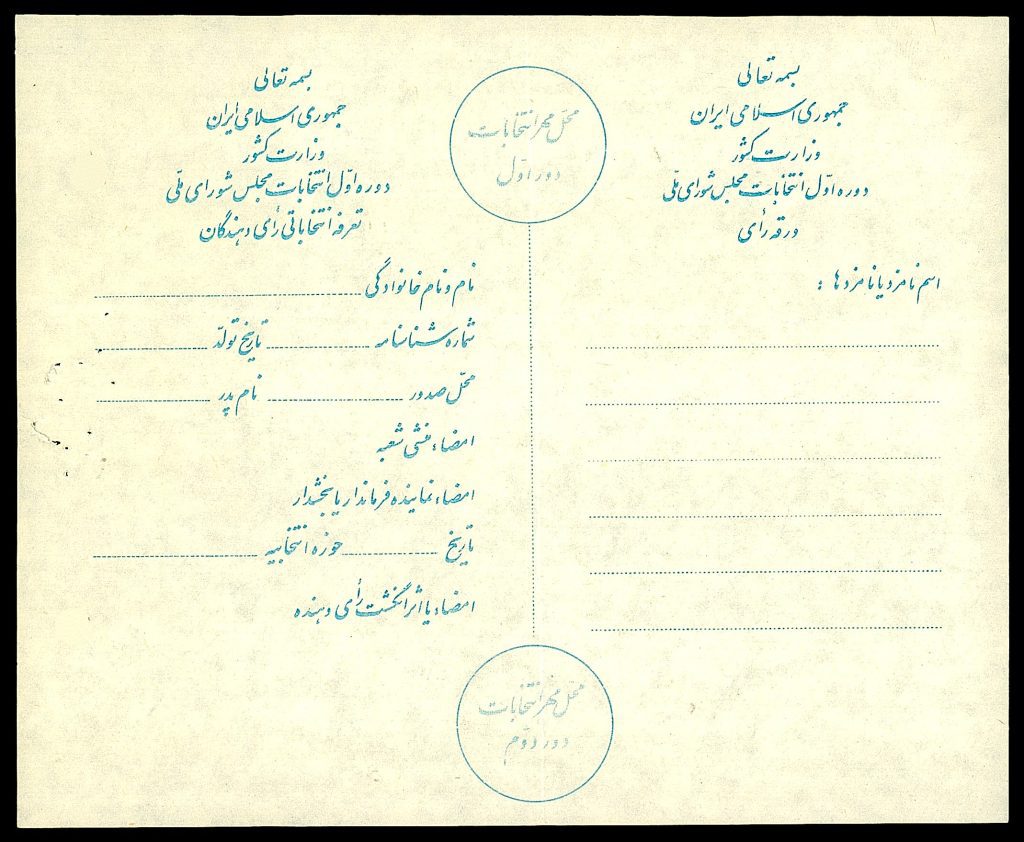 بسمه تعالی
جمهوری اسلامی ایران
وزارت کشور
دوره اوّل انتخابات مجلس شورای ملّی
ورقه رأی
اسم نامزد یا نامزدها :
محلّ مهر انتخابات
دور اوّل
بسمه تعالی
جمهوری اسلامی ایران
وزارت کشور
دوره اوّل انتخابات مجلس شورای ملّی
تعرفه انتخاباتی رأی دهندگان
نام و نام خانوادگی
شماره شناسنامه تاریخ تولّد
محلّ صدور نام پدر
امضاء منشی شعبه
امضاء نماینده فرماندار یا بخشدار
تاریخ حوزه انتخابیه
امضاء یا اثر انگشت رأی دهنده
محلّ مهر انتخابات
دور دوّم